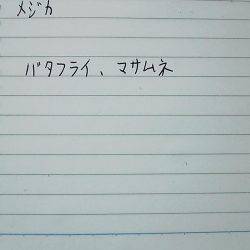 メジカ
バタフライ、マサムネ